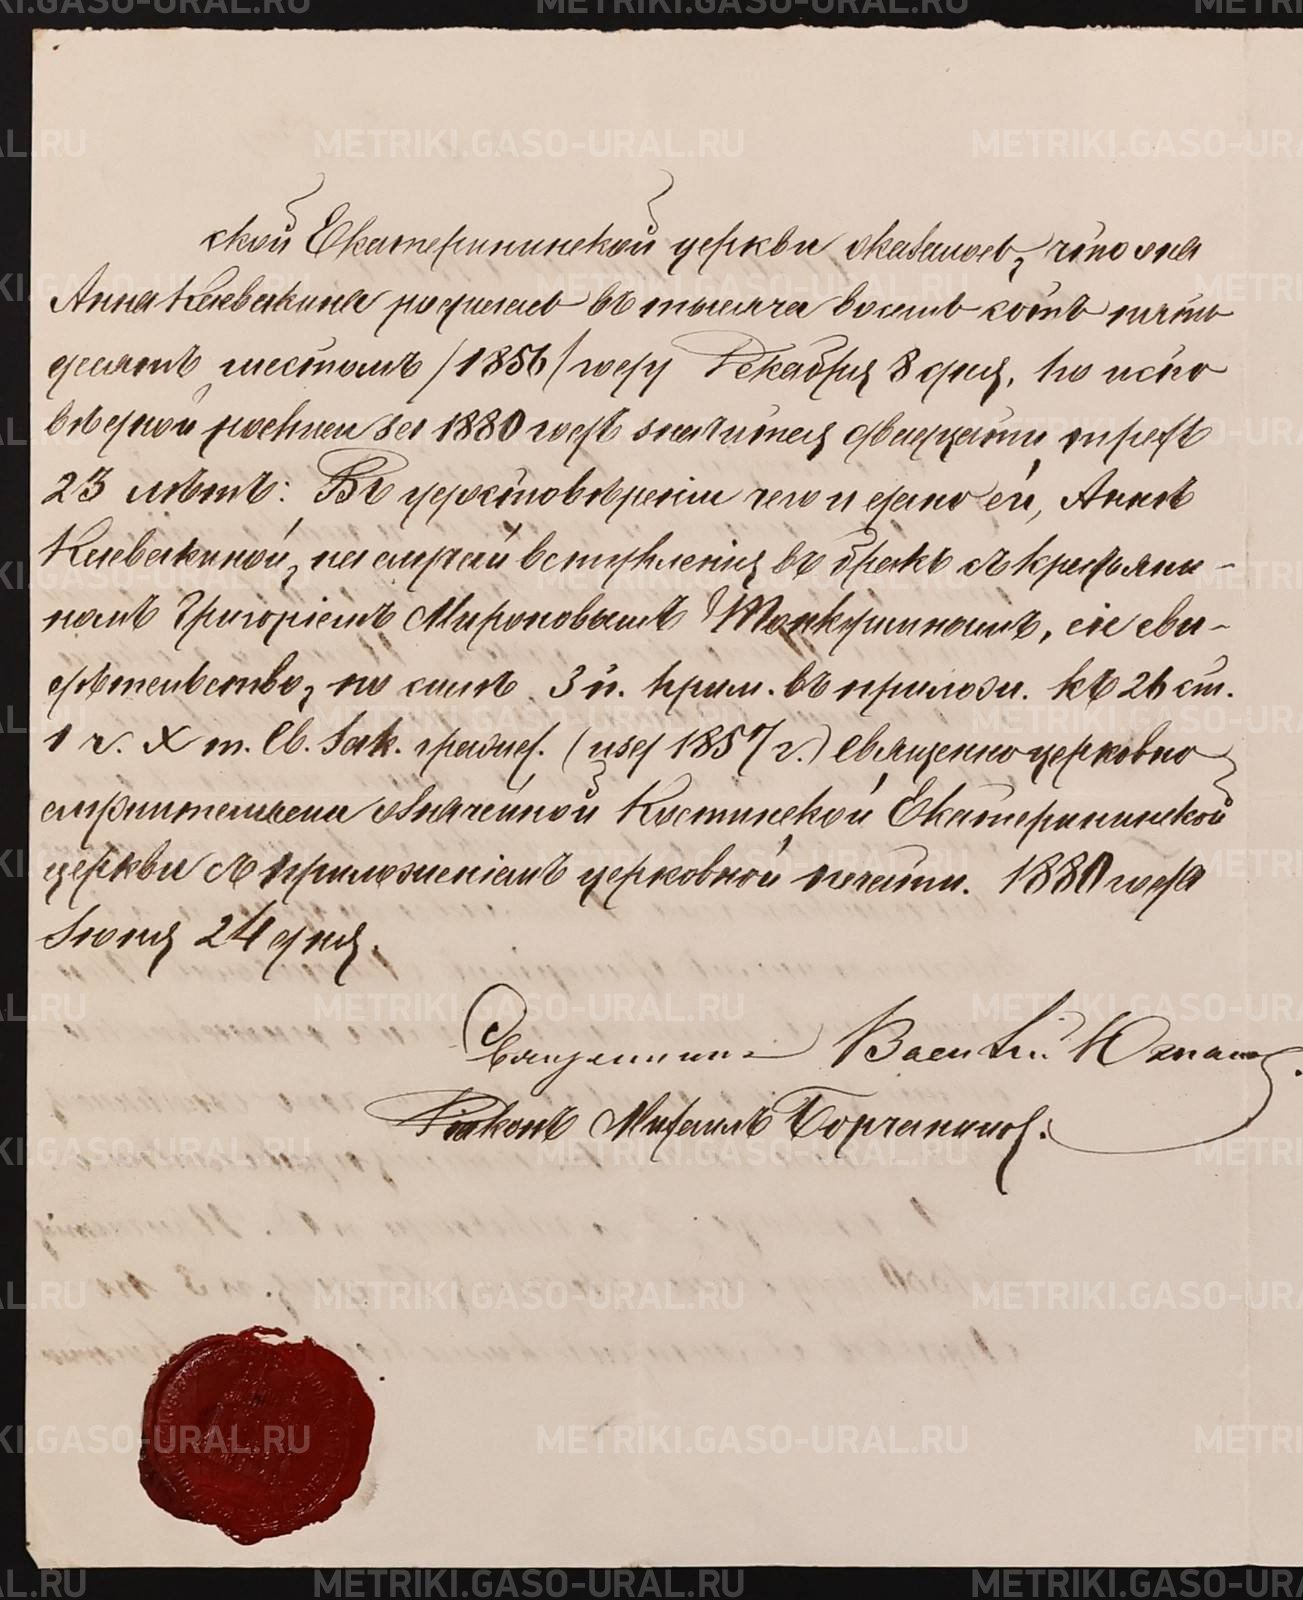 ской Екатерининской церкви оказалось, что она
Анна Клевакина родилась въ тысяча восемь сотъ пять
десятъ шестомъ /1856/ году Декабря 8 дня, по испо
вѣдной росписи за 1880 годъ значится двадцати трехъ
23 лѣтъ: Въ удостовѣреніи чего и дано ей, Аннѣ
Клевакиной, на случай вступленія въ бракъ съ крестьяни-
номъ Григоріемъ Мироновымъ сіе сви-
дѣтельство, по силѣ 3 п. прим. въ прилож. къ 26 ст.
1 ч. X т. Св. Зак. граждан. (изд 1857 г.) Священноцерковно
служителями означенной Костинской Екатерининской
церкви съ приложеніемъ церковной печати. 1880 года
Іюня 24 дня.
Священникъ Василій
Діаконъ Михаилъ
METRIKI.GASO-URAL.RU